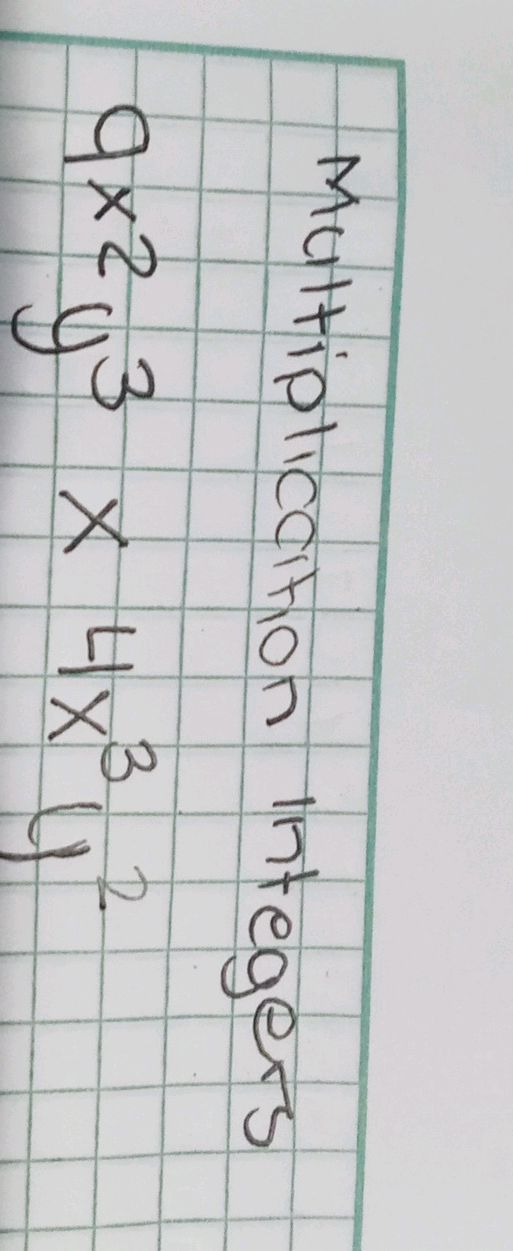 Multiplication Integers
9x²y³ x 4x³y²